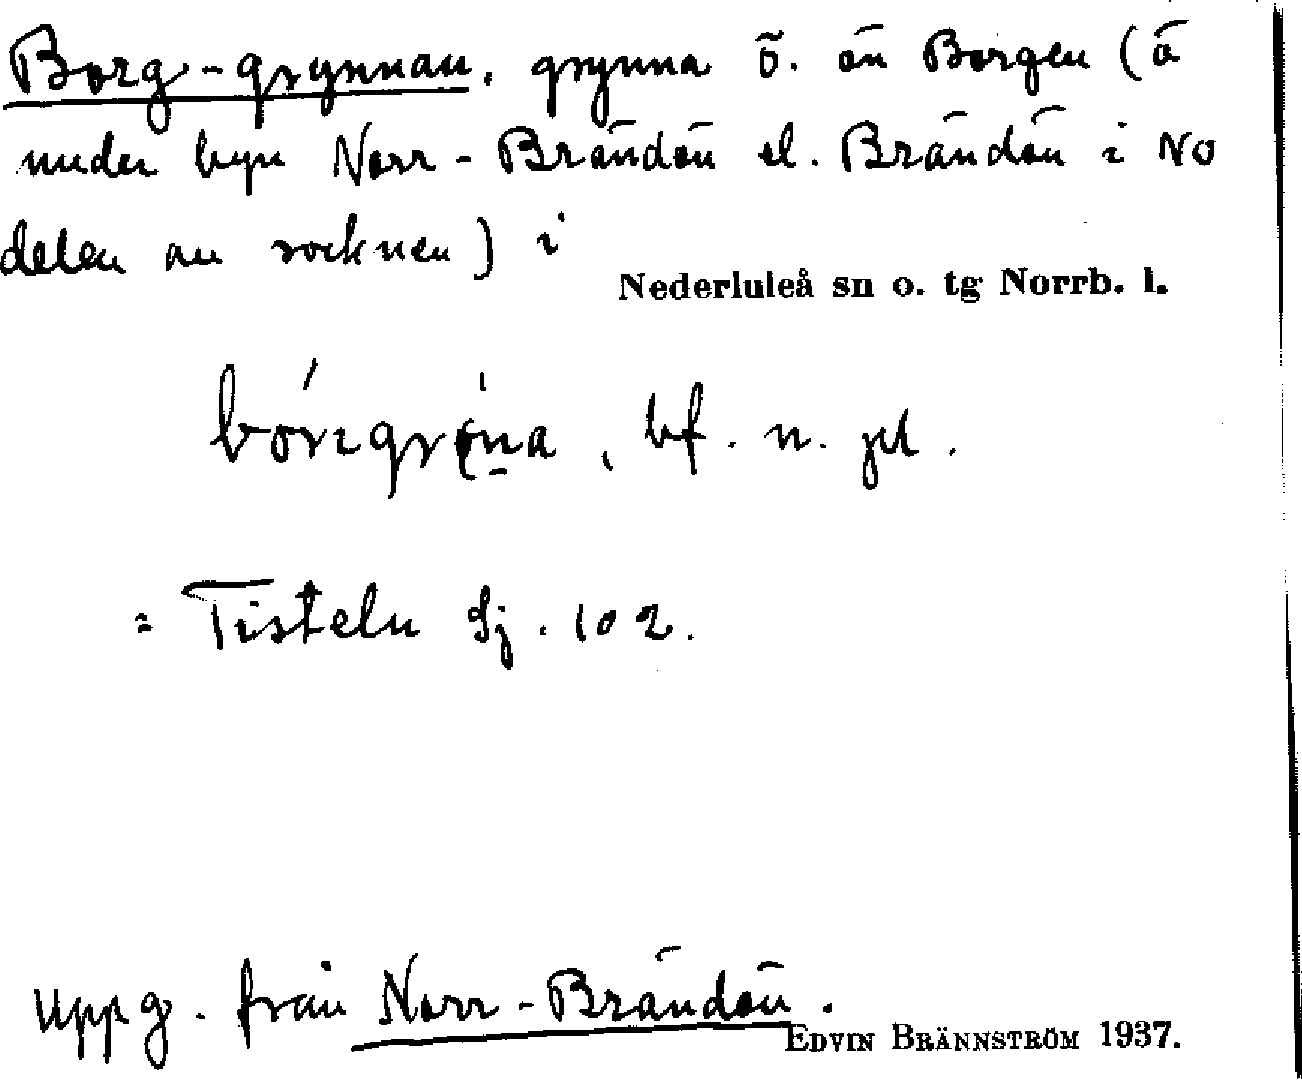 Borg-grynnan, grynna ö. ön Borgen (ö
under byn Norr-Brändön el. Brändön i NO
delen av socknen) i
Nederluleå sn o. tg Norrb. l.
bf. n. pl.
= Tisteln Sj. 102.
Uppg. från Norr-Brändön.
EDVIN BRÄNNSTRÖM 1937.